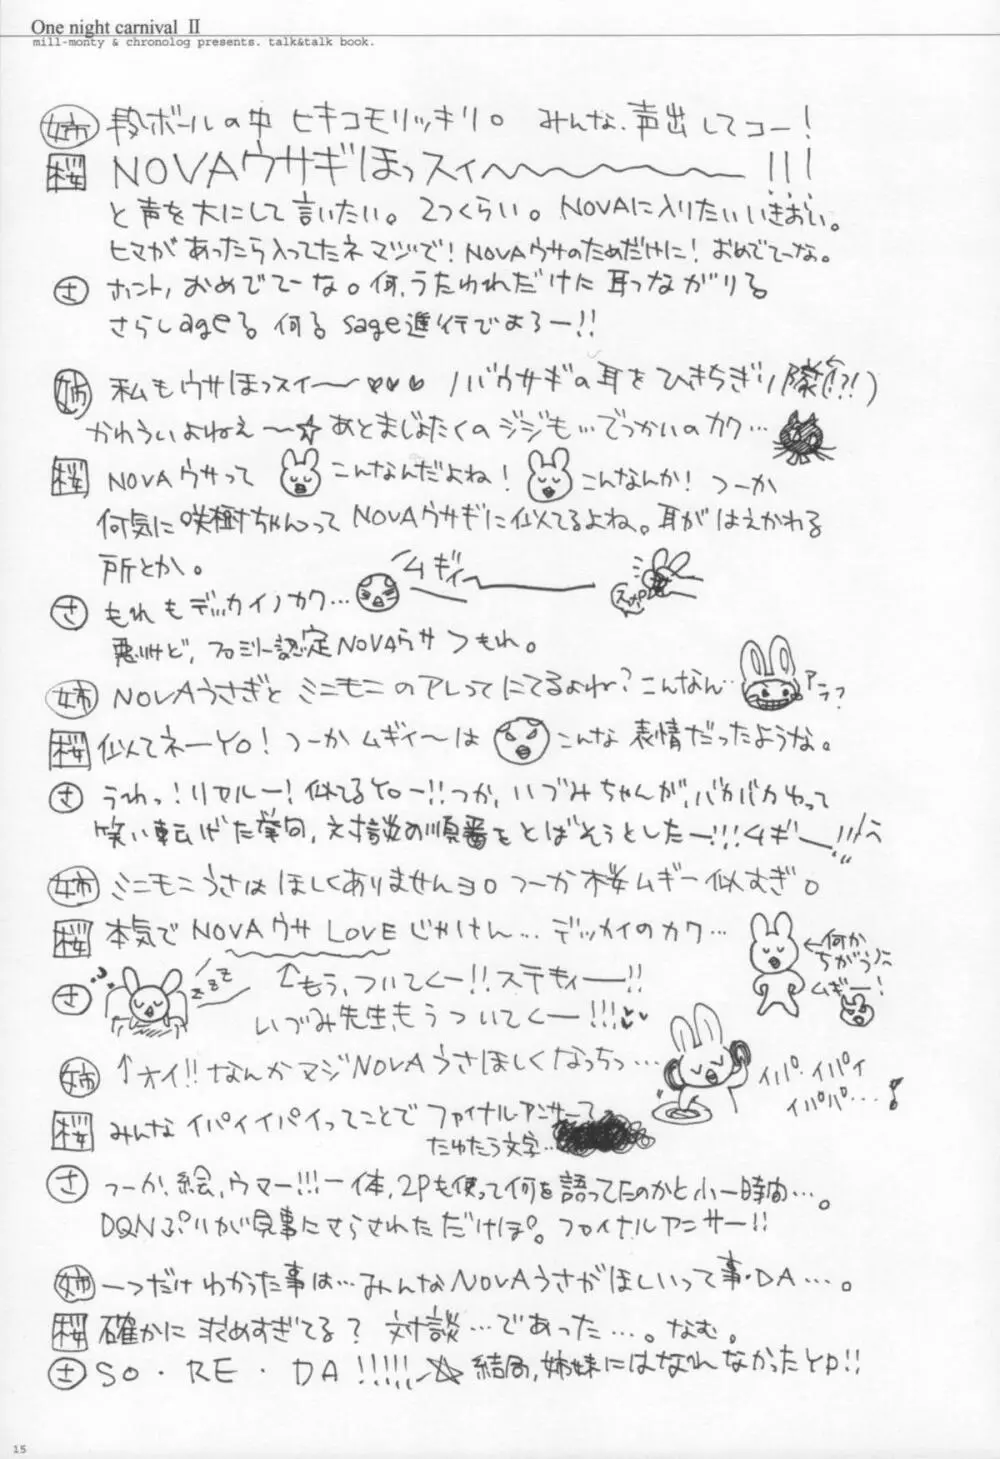 One night carnival Ⅱ
mill-monty & chronolog presents. talk&talk book.
姉 段ボールの中 ヒキコモリッキリ。 みんな、声出してコー!
桜 NOVAウサギほっスィ〜〜〜〜〜〜!!!
と声を大にして言いたい。2つくらい。NOVAに入りたいいきおい。
ヒマがあったら入ってたネ マヅで! NOVAウサのためだけに! おめでてーな。
さ ホント、おめでてーな。何、うたわれだけに耳つながりる
さらしageる 何る sage進行でよろー!!
姉 私もウサほっスィ〜〜♥♥♥ ノバウサギの耳をひきちぎり隊(!?!)
かわういよねえ〜☆ あとまじょたくのジジも…でっかいのカク…
桜 NOVAウサって こんなんだよね! こんなんか! つーか
何気に咲樹ちゃんって NOVAウサギに似てるよね。耳がはえかわる
所とか。
ムギィ〜
さ もれもデッカイノカク…
悪いけど、フロミリー認定NOVAウサつもれ。
姉 NOVAうさぎと ミニモニのアレってにてるよね? こんなん…
桜 似てネーYO! つーか ムギィ〜は こんな 表情だったような。
さ うわっ! リアルー! 似てるYOー!! つか、いづみちゃんが、バカバカわって
笑い転げた挙句、対談の順番をとばそうとしたー!!! ムギー!!!
姉 ミニモニうさは ほしくありませんヨ。つーか桜ムギー似すぎ。
桜 本気で NOVAウサ LOVE じゃけん… デッカイのカク…
←何か
ちがう
ムギー!
さ zzz ↑もう、ついてくー!! ステキィー!!
いづみ先生、もうついてくー!!!♥♥
姉 ↑オイ!! なんかマジNOVAうさほしくなっちっ…
イパ・イパイ
イパパ…!
桜 みんなイパイイパイってことで ファイナルアンサーて、
たゆたう文字…
さ つーか、絵、ウマー!!! 一体、2Pも使って何を語ってたのかと小一時間…。
DQNぷりが見事にさらされただけぽ。ファイナルアンサー!!
姉 一つだけわかった事は…みんなNOVAうさがほしいって事・DA…。
桜 確かに 求めすぎてる? 対談…であった…。なむ。
さ SO・RE・DA!!!!!☆ 結局、姉妹にはなれんなかったYP!!
15